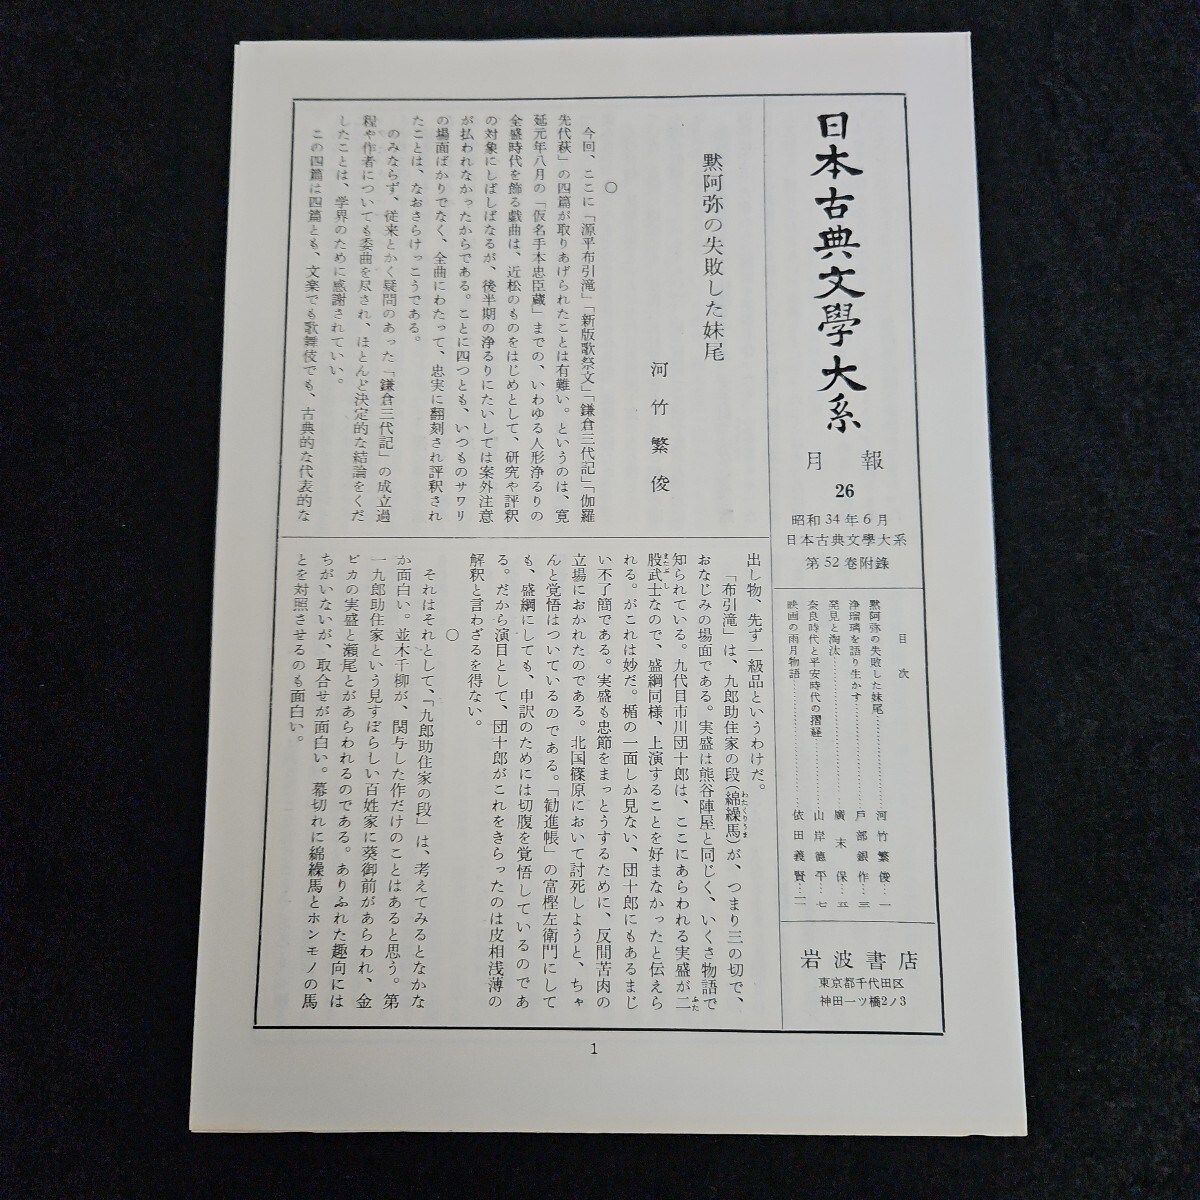 日本古典文學大系
月報
26
昭和34年6月
日本古典文學大系
第52巻附錄
目次
黙阿弥の失敗した妹尾……………河竹繁俊…一
浄瑠璃を語り生かす……………戸部銀作…三
発見と淘汰……………廣末保…五
奈良時代と平安時代の摺経……………山岸德平…七
映画の雨月物語……………依田義賢…一一
岩波書店
東京都千代田区
神田一ツ橋2ノ3
黙阿弥の失敗した妹尾
河竹繁俊
○
今回、ここに「源平布引滝」「新版歌祭文」「鎌倉三代記」「伽羅
先代萩」の四篇が取りあげられたことは有難い。というのは、寛
延元年八月の「仮名手本忠臣蔵」までの、いわゆる人形浄るりの
全盛時代を飾る戯曲は、近松のものをはじめとして、研究や評釈
の対象にしばしばなるが、後半期の浄るりにたいしては案外注意
が払われなかったからである。ことに四つとも、いつものサワリ
の場面ばかりでなく、全曲にわたって、忠実に翻刻され評釈され
たことは、なおさらけっこうである。
のみならず、従来とかく疑問のあった「鎌倉三代記」の成立過
程や作者についても委曲を尽され、ほとんど決定的な結論をくだ
したことは、学界のために感謝されていい。
この四篇は四篇とも、文楽でも歌舞伎でも、古典的な代表的な
出し物、先ず一級品というわけだ。
「布引滝」は、九郎助住家の段(綿繰馬わたくりうま)が、つまり三の切で、
おなじみの場面である。実盛は熊谷陣屋と同じく、いくさ物語で
知られている。九代目市川団十郎は、ここにあらわれる実盛が二ふた
股武士またぶしなので、盛綱同様、上演することを好まなかったと伝えら
れる。がこれは妙だ。楯の一面しか見ない、団十郎にもあるまじ
い不了簡である。実盛も忠節をまっとうするために、反間苦肉の
立場におかれたのである。北国篠原において討死しようと、ちゃ
んと覚悟はついているのである。「勧進帳」の富樫左衛門にして
も、盛綱にしても、申訳のためには切腹を覚悟しているのであ
る。だから演目として、団十郎がこれをきらったのは皮相浅薄の
解釈と言わざるを得ない。
○
それはそれとして、「九郎助住家の段」は、考えてみるとなかな
か面白い。並木千柳が、関与した作だけのことはあると思う。第
一九郎助住家という見すぼらしい百姓家に葵御前があらわれ、金
ピカの実盛と瀬尾とがあらわれるのである。ありふれた趣向には
ちがいないが、取合せが面白い。幕切れに綿繰馬とホンモノの馬
とを対照させるのも面白い。
1